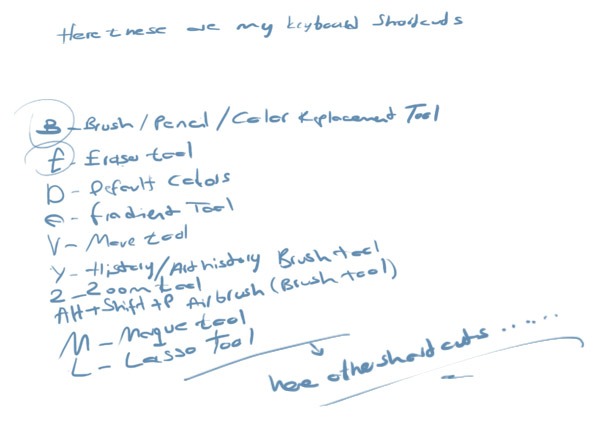 Here these are my keyboard Shortcuts
B - Brush / Pencil / Color Replacement Tool
E - Eraser tool
D - Default Colors
G - Gradient Tool
V - Move tool
Y - History/Art history Brush tool
Z - Zoom tool
Alt + Shift + P Airbrush (Brush tool)
M - Marque tool
L - Lasso Tool
here other shortcuts ......